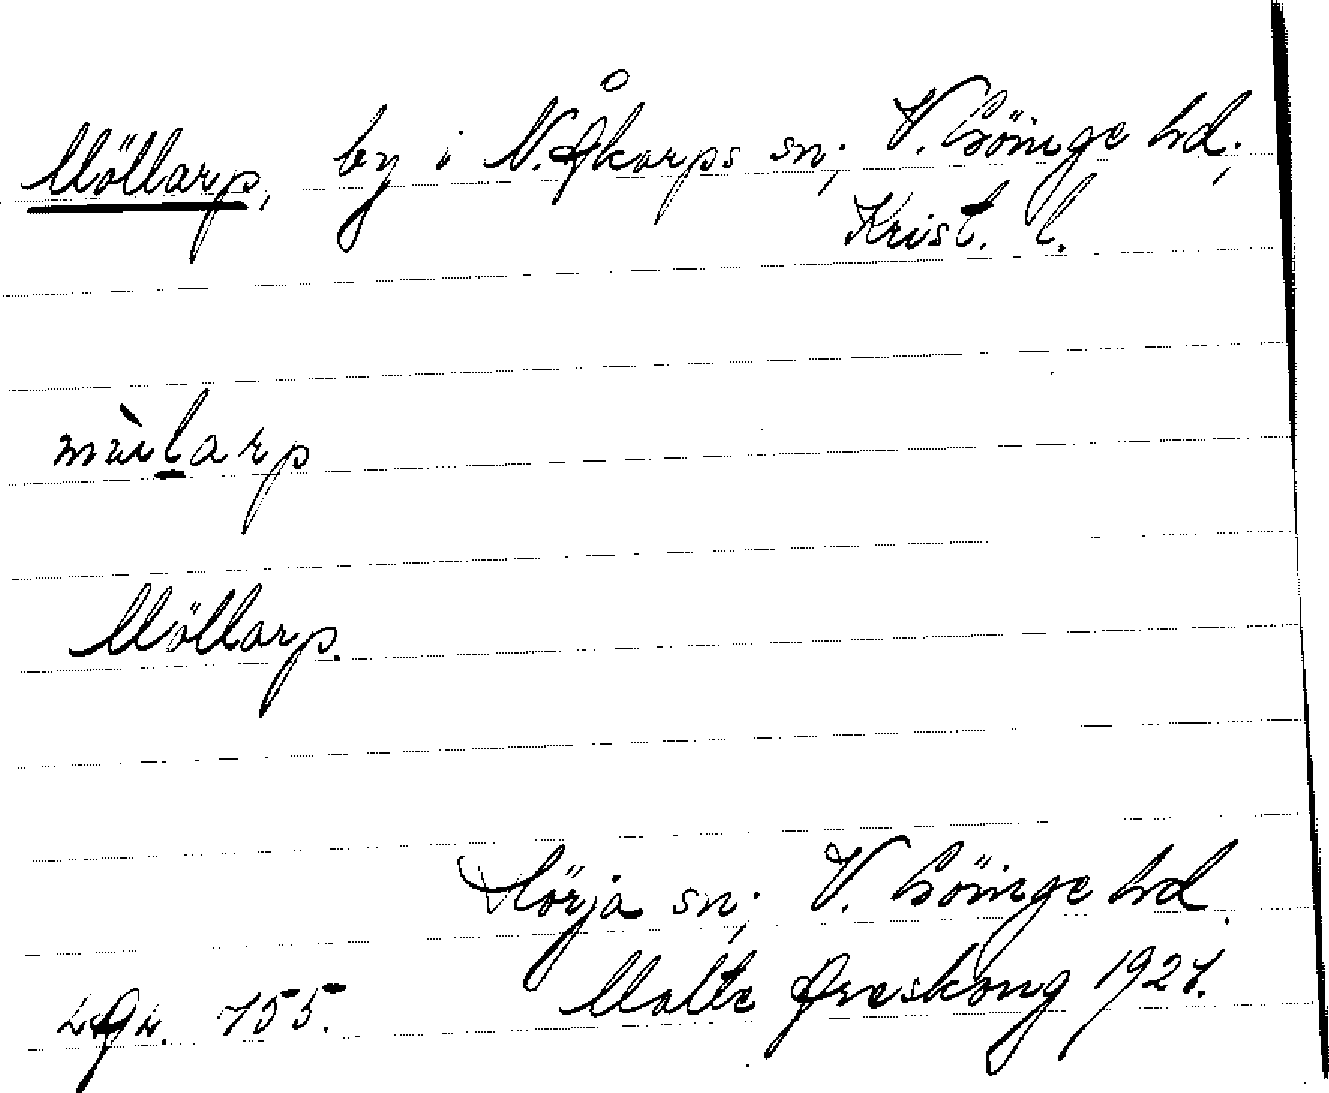 Möllarp, by i N. Åkarps sn; V. Göinge hd;
Krist. l.
Möllarp.
Hörja sn; V. Göinge hd.
Malte Areskoug 1927.
755.